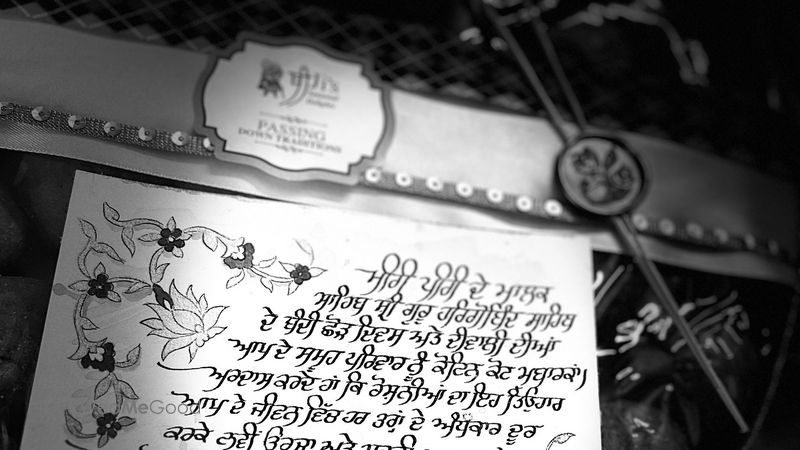 PASSING
DOWN TRADITIONS
ਮੀਰੀ ਪੀਰੀ ਦੇ ਮਾਲਕ
ਸਾਹਿਬ ਸ੍ਰੀ ਗੁਰੂ ਹਰਿਗੋਬਿੰਦ ਸਾਹਿਬ
ਦੇ ਬੰਦੀ ਛੋੜ ਦਿਵਸ ਅਤੇ ਦੀਵਾਲੀ ਦੀਆਂ
ਆਪ ਦੇ ਸਮੂਹ ਪਰਿਵਾਰ ਨੂੰ ਕੋਟਿਨ ਕੋਟ ਮੁਬਾਰਕਾਂ
ਅਰਦਾਸ ਕਰਦੇ ਹਾਂ ਕਿ ਰੋਸ਼ਨੀਆਂ ਦਾ ਇਹ ਤਿਉਹਾਰ
ਆਪ ਦੇ ਜੀਵਨ ਵਿੱਚ ਹਰ ਤਰ੍ਹਾਂ ਦੇ ਅੰਧਕਾਰ ਦੂਰ
ਕਰਕੇ ਨਵੀਂ ਊਰਜਾ ਅਤੇ
WeGood